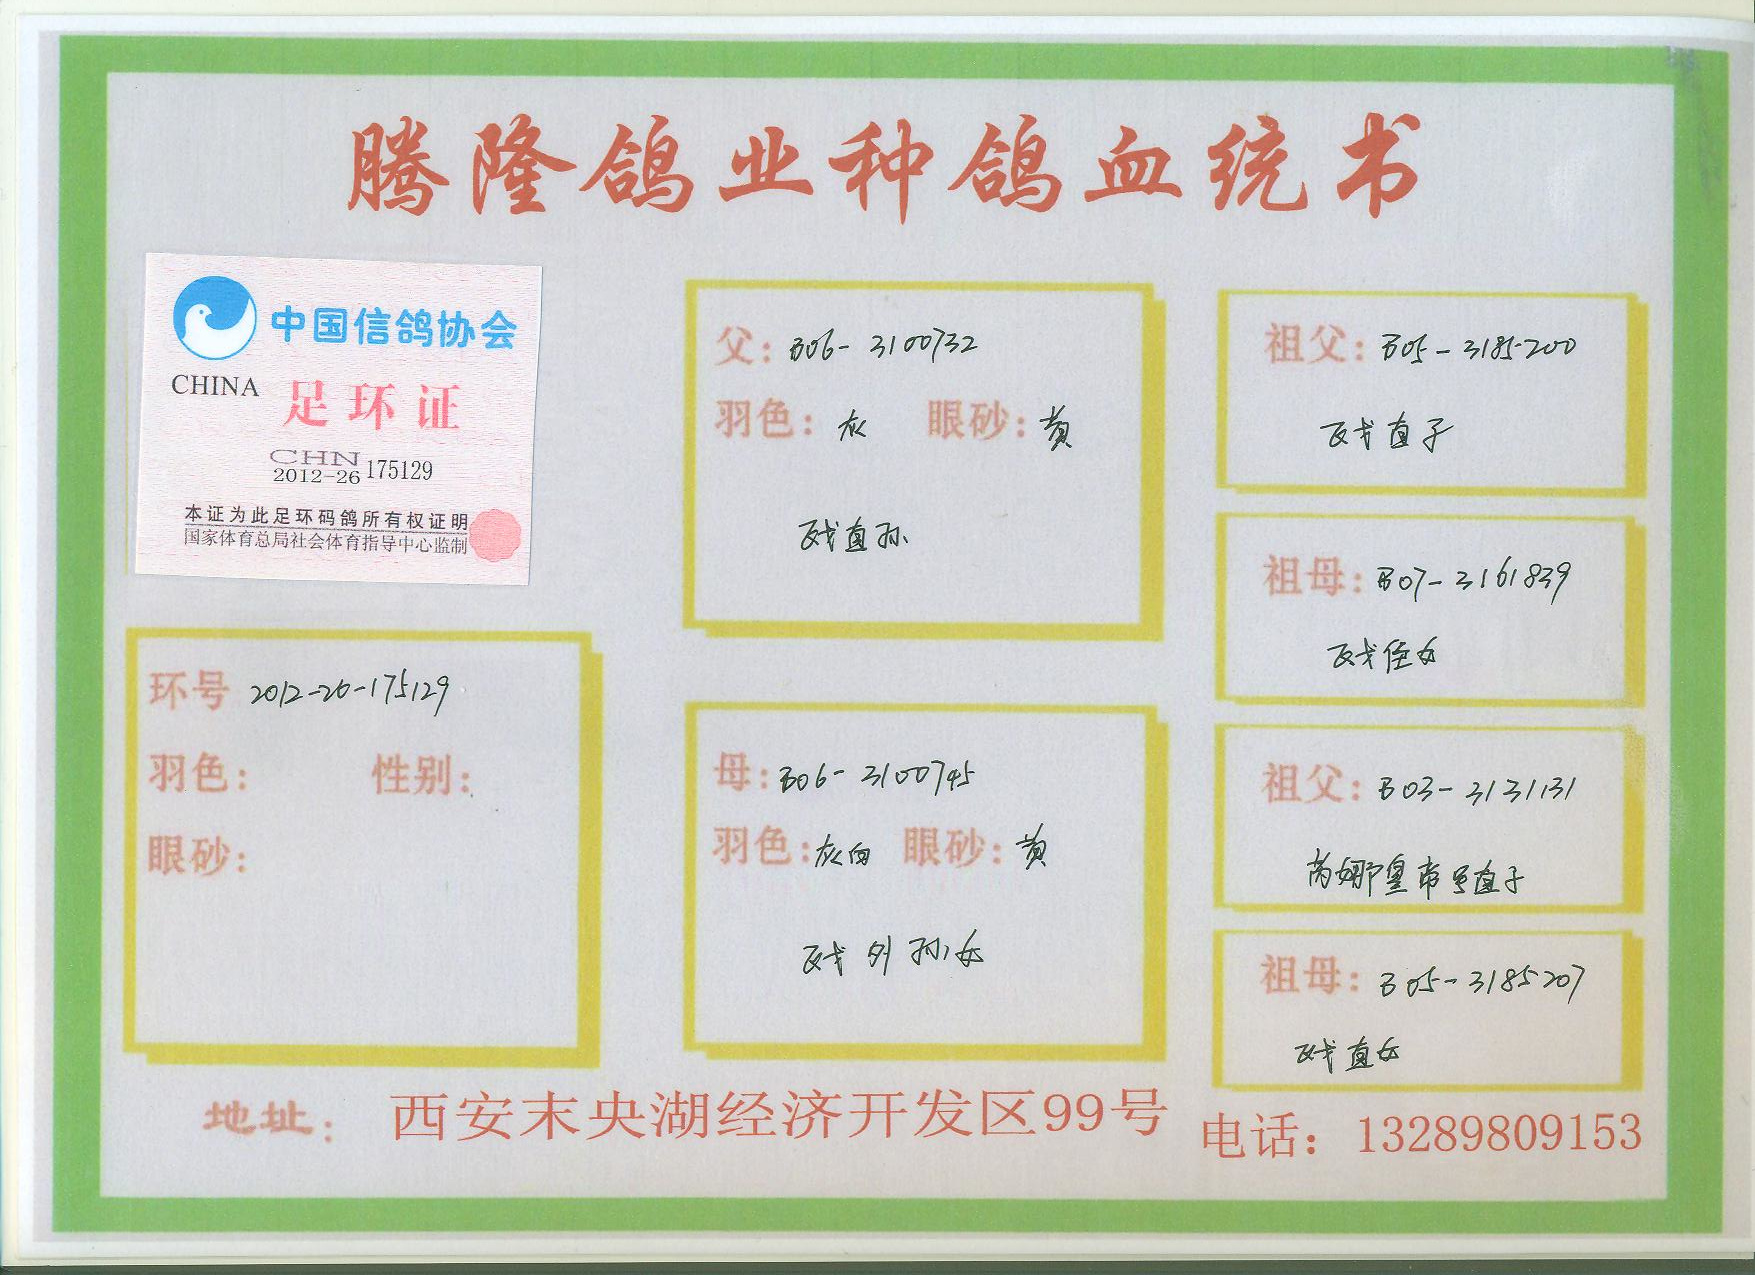 腾隆鸽业种鸽血统书
中国信鸽协会
CHINA 足环证
CHN
2012-26 175129
本证为此足环码鸽所有权证明
国家体育总局社会体育指导中心监制
环号 2012-26-175129
羽色： 性别：
眼砂：
父：B06-3100732
羽色：灰 眼砂：黄
瓦戈直孙
母：B06-3100745
羽色：灰白 眼砂：黄
瓦戈外孙女
祖父：B05-3185200
瓦戈直子
祖母：B07-3161839
瓦戈侄女
祖父：B03-3131131
芮娜皇帝号直子
祖母：B05-3185207
瓦戈直女
地址： 西安末央湖经济开发区99号
电话：13289809153